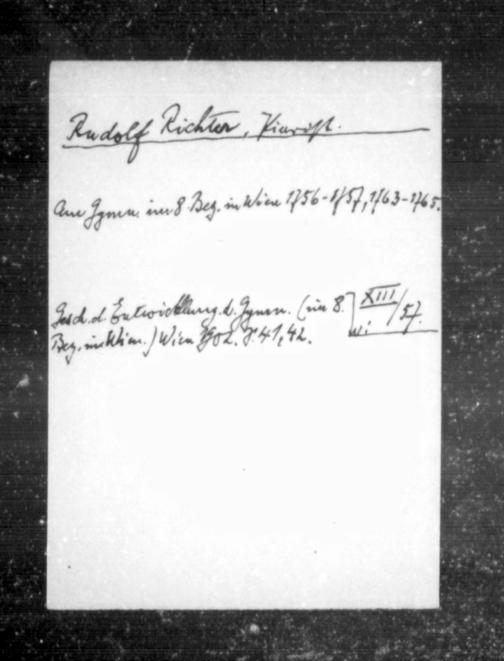 Rudolf Richter, Piarist.
Am Gymn. im 8. Bez. in Wien 1756-1757, 1763-1765.
Gesch. d. Entwicklung d. Gymn. (im 8.
Bez. in Wien.) Wien 1902. S. 41, 42.
XIII/57.